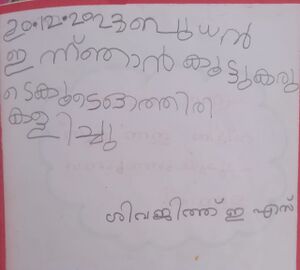 20.12.2023 ബുധൻ
ഇന്ന്ഞാൻ കൂട്ടുകരു
ടെകൂടെഒത്തിരി
കളിച്ചു
ശിവജിത്ത് ഇ എസ്